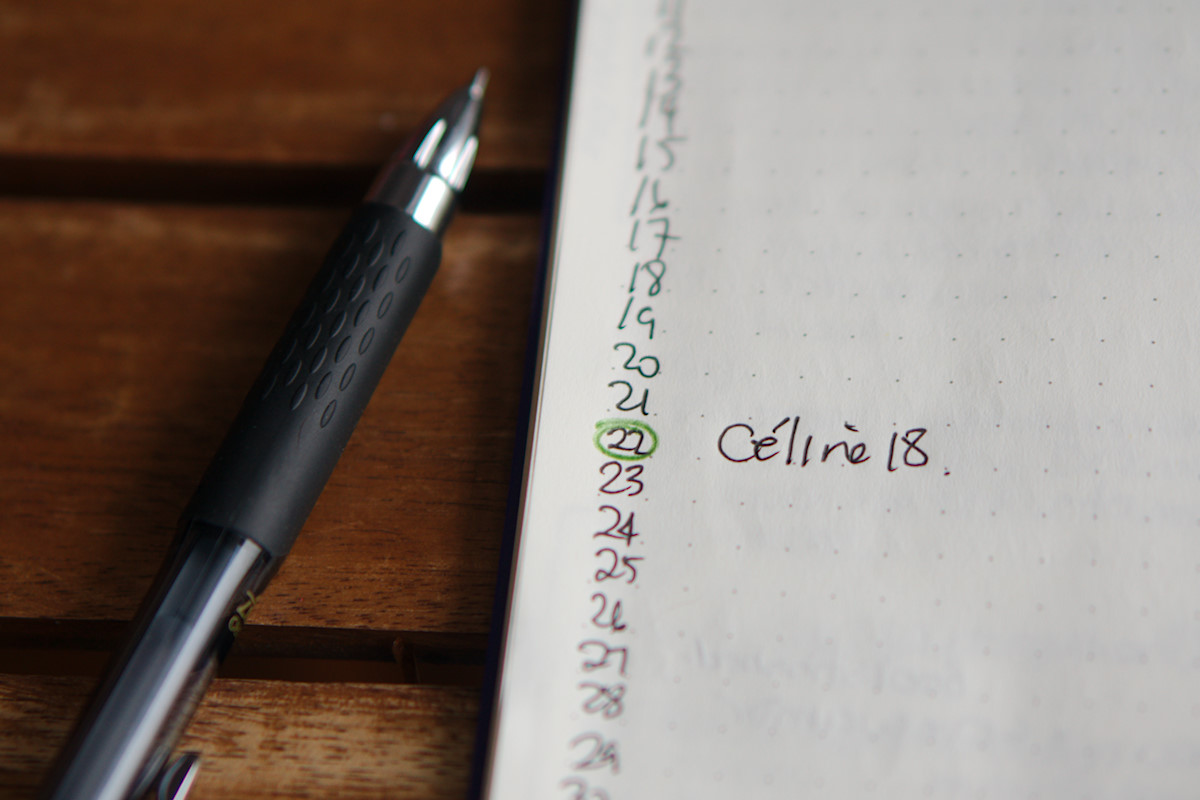 15
16
17
18
19
20
21
22 Céline 18.
23
24
25
26
27
28
29